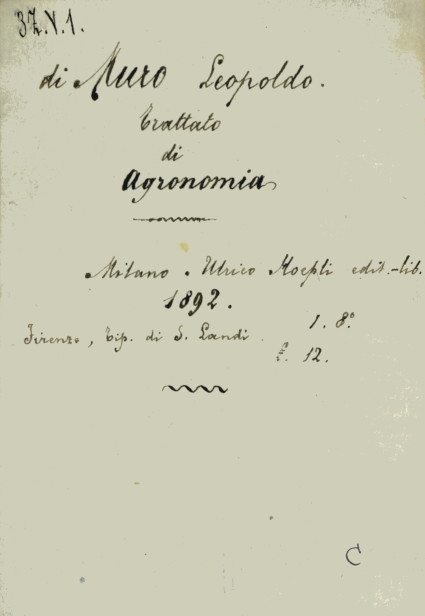 37.V.1.
di Muro Leopoldo.
Trattato
di
Agronomia
Milano. Ulrico Hoepli edit.-lib.
1892.
Firenze, Tip. di S. Landi.
1. 8°
£. 12.
C